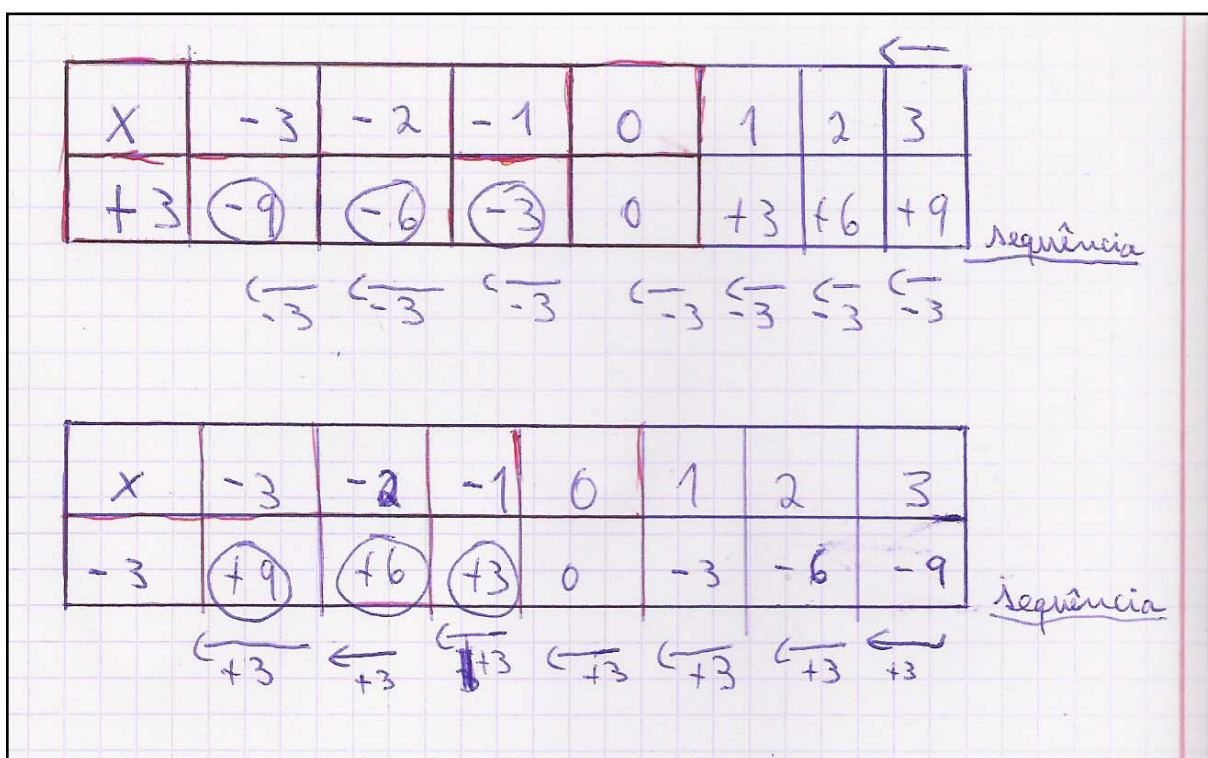 X -3 -2 -1 0 1 2 3
+3 -9 -6 -3 0 +3 +6 +9
sequência
-3 -3 -3 -3 -3 -3 -3
X -3 -2 -1 0 1 2 3
-3 +9 +6 +3 0 -3 -6 -9
sequência
+3 +3 +3 +3 +3 +3 +3